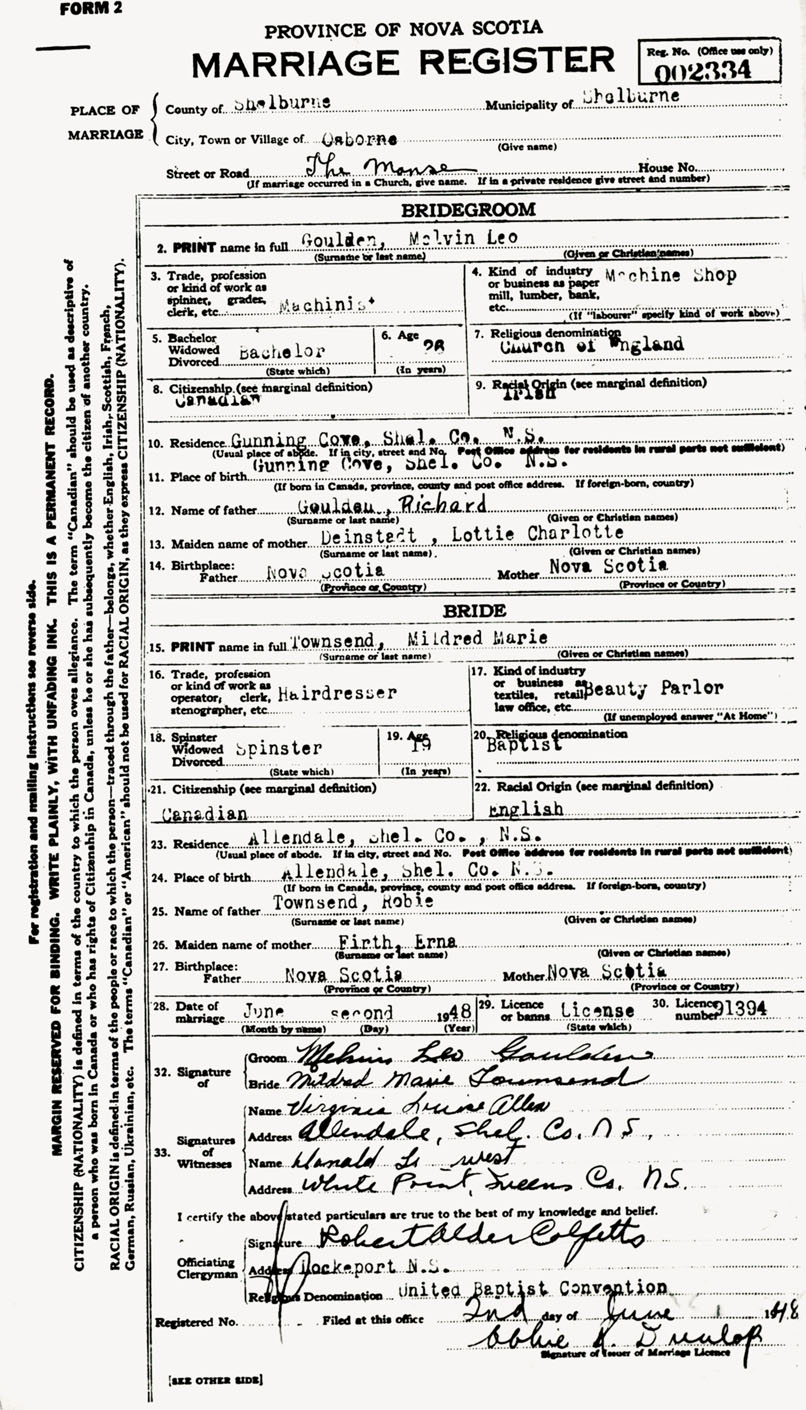 FORM 2
PROVINCE OF NOVA SCOTIA
MARRIAGE REGISTER
Reg. No. (Office use only)
002334
PLACE OF MARRIAGE
County of Shelburne Municipality of Shelburne
City, Town or Village of Osborne
(Give name)
Street or Road The Manse House No.
(If marriage occurred in a Church, give name. If in a private residence give street and number)
BRIDEGROOM
2. PRINT name in full Goulden, Melvin Leo
(Surname or last name) (Given or Christian names)
3. Trade, profession or kind of work as spinner, grader, clerk, etc. Machinist
4. Kind of industry or business as paper mill, lumber, bank, etc. Machine Shop
(If "labourer" specify kind of work above)
5. Bachelor Widowed Divorced Bachelor
(State which)
6. Age 26
(In years)
7. Religious denomination
Church of England
8. Citizenship (see marginal definition)
Canadian
9. Racial Origin (see marginal definition)
Irish
10. Residence Gunning Cove, Shel. Co. N.S.
(Usual place of abode. If in city, street and No. Post Office address for residents in rural parts not sufficient)
11. Place of birth Gunning Cove, Shel. Co. N.S.
(If born in Canada, province, county and post office address. If foreign-born, country)
12. Name of father Goulden, Richard
(Surname or last name) (Given or Christian names)
13. Maiden name of mother Deinstadt, Lottie Charlotte
(Surname or last name) (Given or Christian names)
14. Birthplace: Father Nova Scotia Mother Nova Scotia
(Province or Country) (Province or Country)
BRIDE
15. PRINT name in full Townsend, Mildred Marie
(Surname or last name) (Given or Christian names)
16. Trade, profession or kind of work as operator, clerk, stenographer, etc. Hairdresser
17. Kind of industry or business as textiles, retail law office, etc. Beauty Parlor
(If unemployed answer "At Home")
18. Spinster Widowed Divorced Spinster
(State which)
19. Age 19
(In years)
20. Religious denomination
Baptist
21. Citizenship (see marginal definition)
Canadian
22. Racial Origin (see marginal definition)
English
23. Residence Allendale, Shel. Co., N.S.
(Usual place of abode. If in city, street and No. Post Office address for residents in rural parts not sufficient)
24. Place of birth Allendale, Shel. Co. N.S.
(If born in Canada, province, county and post office address. If foreign-born, country)
25. Name of father Townsend, Robie
(Surname or last name) (Given or Christian names)
26. Maiden name of mother Firth, Erna
(Surname or last name) (Given or Christian names)
27. Birthplace: Father Nova Scotia Mother Nova Scotia
(Province or Country) (Province or Country)
28. Date of marriage June second 1948
(Month by name) (Day) (Year)
29. Licence or banns License
(State which)
30. Licence number 91394
32. Signature of
Groom Melvin Leo Goulden
Bride Mildred Marie Townsend
33. Signatures of Witnesses
Name Virginia Louise Allen
Address Allendale, Shel. Co. N S.
Name L. West
Address White Point, Queens Co. N.S.
I certify the above stated particulars are true to the best of my knowledge and belief.
Officiating Clergyman
Signature Robert Alder
Address Lockeport N.S.
Religious Denomination United Baptist Convention
Registered No. Filed at this office 2nd day of June 1948
Dunlop
Signature of Issuer of Marriage Licence
[SEE OTHER SIDE]
For registration and mailing instructions see reverse side.
MARGIN RESERVED FOR BINDING. WRITE PLAINLY, WITH UNFADING INK. THIS IS A PERMANENT RECORD.
CITIZENSHIP (NATIONALITY) is defined in terms of the country to which the person owes allegiance. The term "Canadian" should be used as descriptive of
a person who was born in Canada or who has rights of Citizenship in Canada, unless he or she has subsequently become the citizen of another country.
RACIAL ORIGIN is defined in terms of the people or race to which the person—traced through the father—belongs, whether English, Irish, Scottish, French,
German, Russian, Ukrainian, etc. The terms "Canadian" or "American" should not be used for RACIAL ORIGIN, as they express CITIZENSHIP (NATIONALITY).